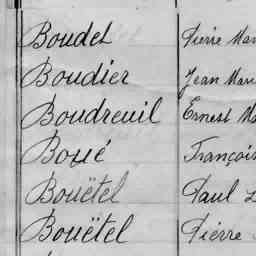 Boudet Pierre Mar
Boudier Jean Mari
Boudreuil Ernest Ma
Boué François
Bouëtel Paul L
Bouëtel Pierre